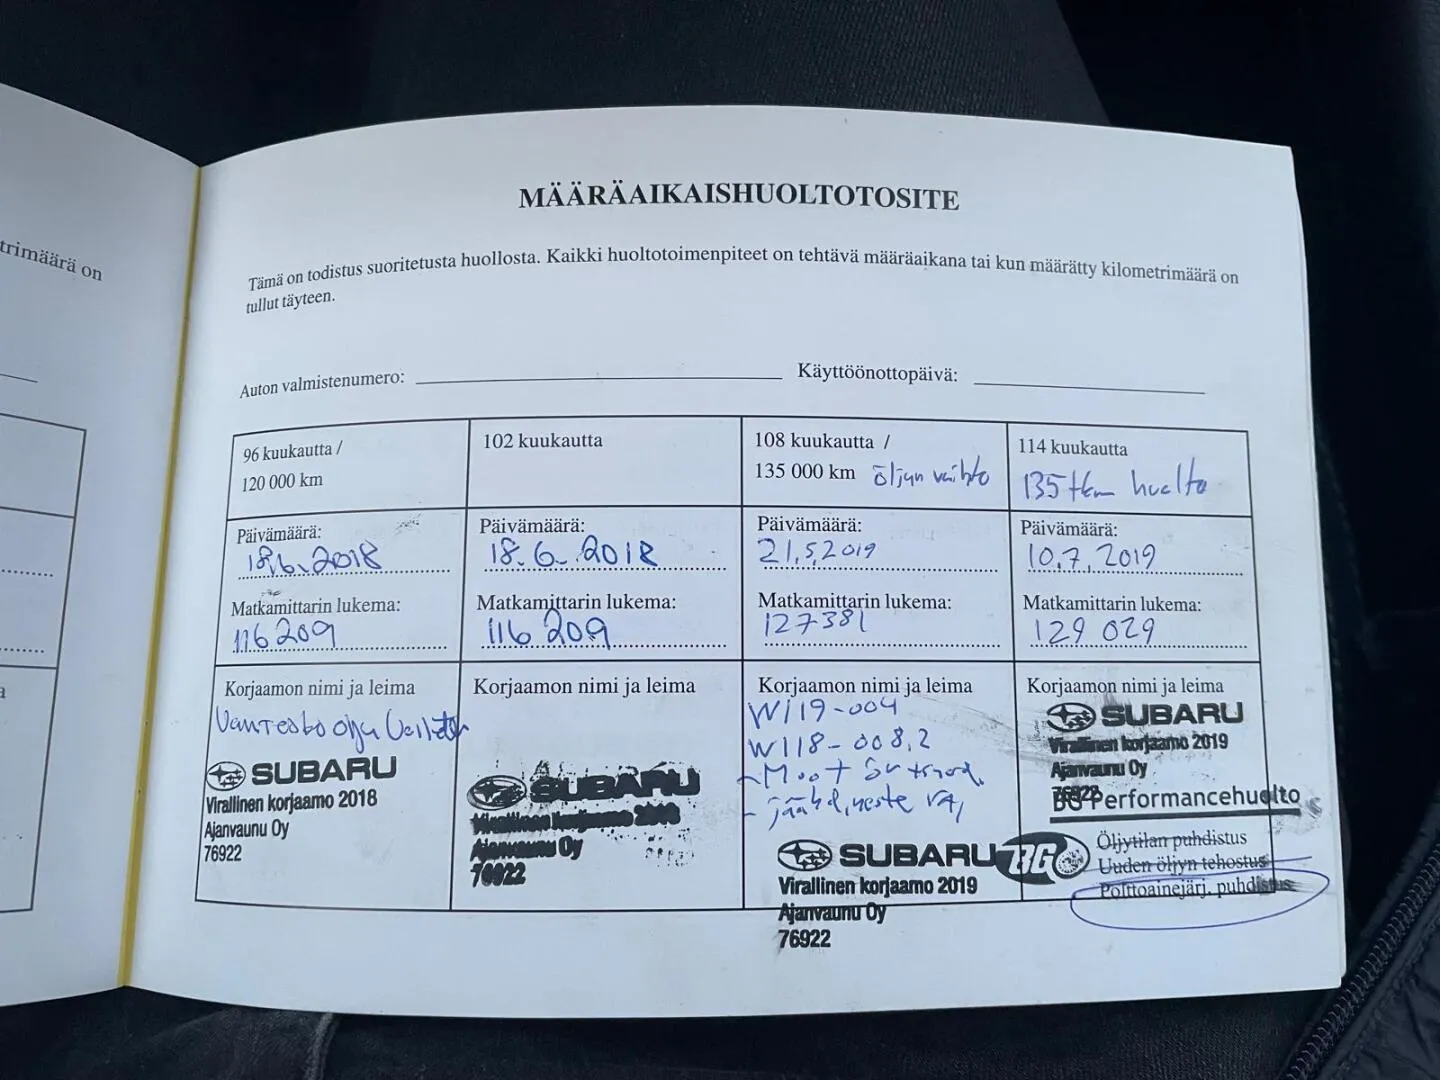 trimäärä on
MÄÄRÄAIKAISHUOLTOTOSITE
Tämä on todistus suoritetusta huollosta. Kaikki huoltotoimenpiteet on tehtävä määräaikana tai kun määrätty kilometrimäärä on
tullut täyteen.
Auton valmistenumero:
Käyttöönottopäivä:
96 kuukautta /
120 000 km
Päivämäärä:
18.6.2018
Matkamittarin lukema:
116209
Korjaamon nimi ja leima
SUBARU
Virallinen korjaamo 2018
Ajanvaunu Oy
76922
102 kuukautta
Päivämäärä:
18.6.2018
Matkamittarin lukema:
116 209
Korjaamon nimi ja leima
SUBARU
Virallinen korjaamo 2018
Ajanvaunu Oy
76922
108 kuukautta /
135 000 km öljyn vaihto
Päivämäärä:
21.5.2019
Matkamittarin lukema:
127381
Korjaamon nimi ja leima
W119-004
W118-008.2
SUBARU
Virallinen korjaamo 2019
Ajanvaunu Oy
76922
114 kuukautta
135 tkm huolto
Päivämäärä:
10.7.2019
Matkamittarin lukema:
129 029
Korjaamon nimi ja leima
SUBARU
Virallinen korjaamo 2019
Ajanvaunu Oy
76922
BG Performancehuolto
BG
Öljytilan puhdistus
Uuden öljyn tehostus
Polttoainejärj. puhdistus